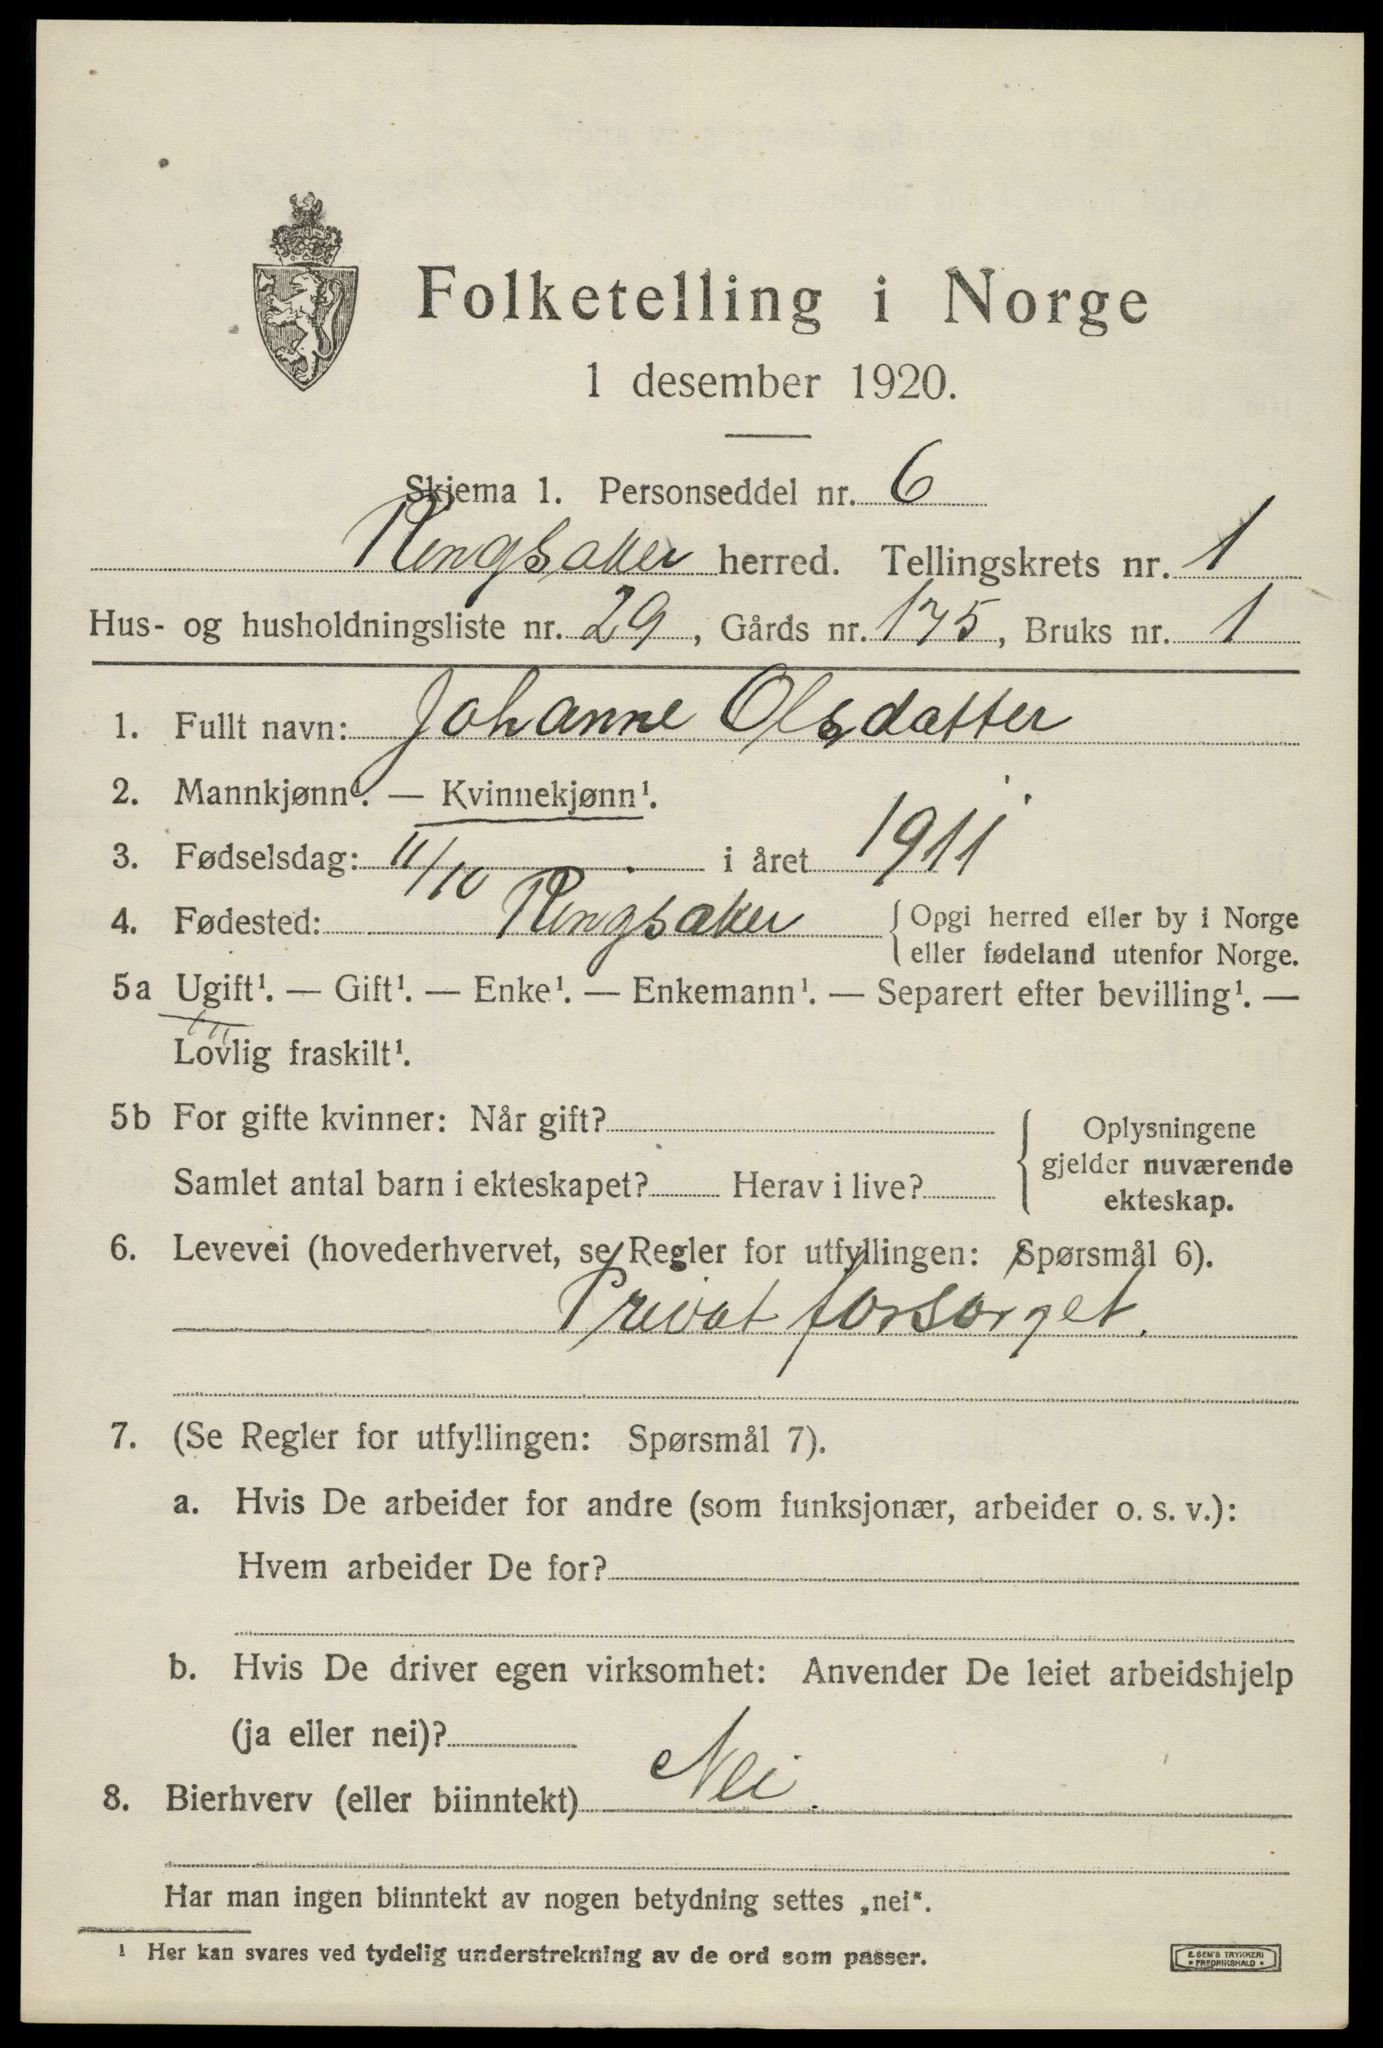 Folketelling i Norge
1 desember 1920.
Skjema 1. Personseddel nr. 6
Ringsaker herred. Tellingskrets nr. 1
Hus- og husholdningsliste nr. 29, Gårds nr. 175, Bruks nr. 1
1. Fullt navn: Johanne Olsdatter
2. Mannkjønn¹. — Kvinnekjønn¹.
3. Fødselsdag: 11/10 i året 1911
4. Fødested: Ringsaker { Opgi herred eller by i Norge
eller fødeland utenfor Norge.
5a Ugift¹. — Gift¹. — Enke¹. — Enkemann¹. — Separert efter bevilling¹. —
Lovlig fraskilt¹.
5b For gifte kvinner: Når gift? { Oplysningene
gjelder nuværende
Samlet antal barn i ekteskapet? Herav i live?
ekteskap.
6. Levevei (hovederhvervet, se Regler for utfyllingen: Spørsmål 6).
Privat forsørget.
7. (Se Regler for utfyllingen: Spørsmål 7).
a. Hvis De arbeider for andre (som funksjonær, arbeider o. s. v.):
Hvem arbeider De for?
b. Hvis De driver egen virksomhet: Anvender De leiet arbeidshjelp
(ja eller nei)?
8. Bierhverv (eller biinntekt) Nei.
Har man ingen biinntekt av nogen betydning settes „nei“.
¹ Her kan svares ved tydelig understrekning av de ord som passer.
E. SEM'S TRYKKERI
• FREDRIKSHALD •